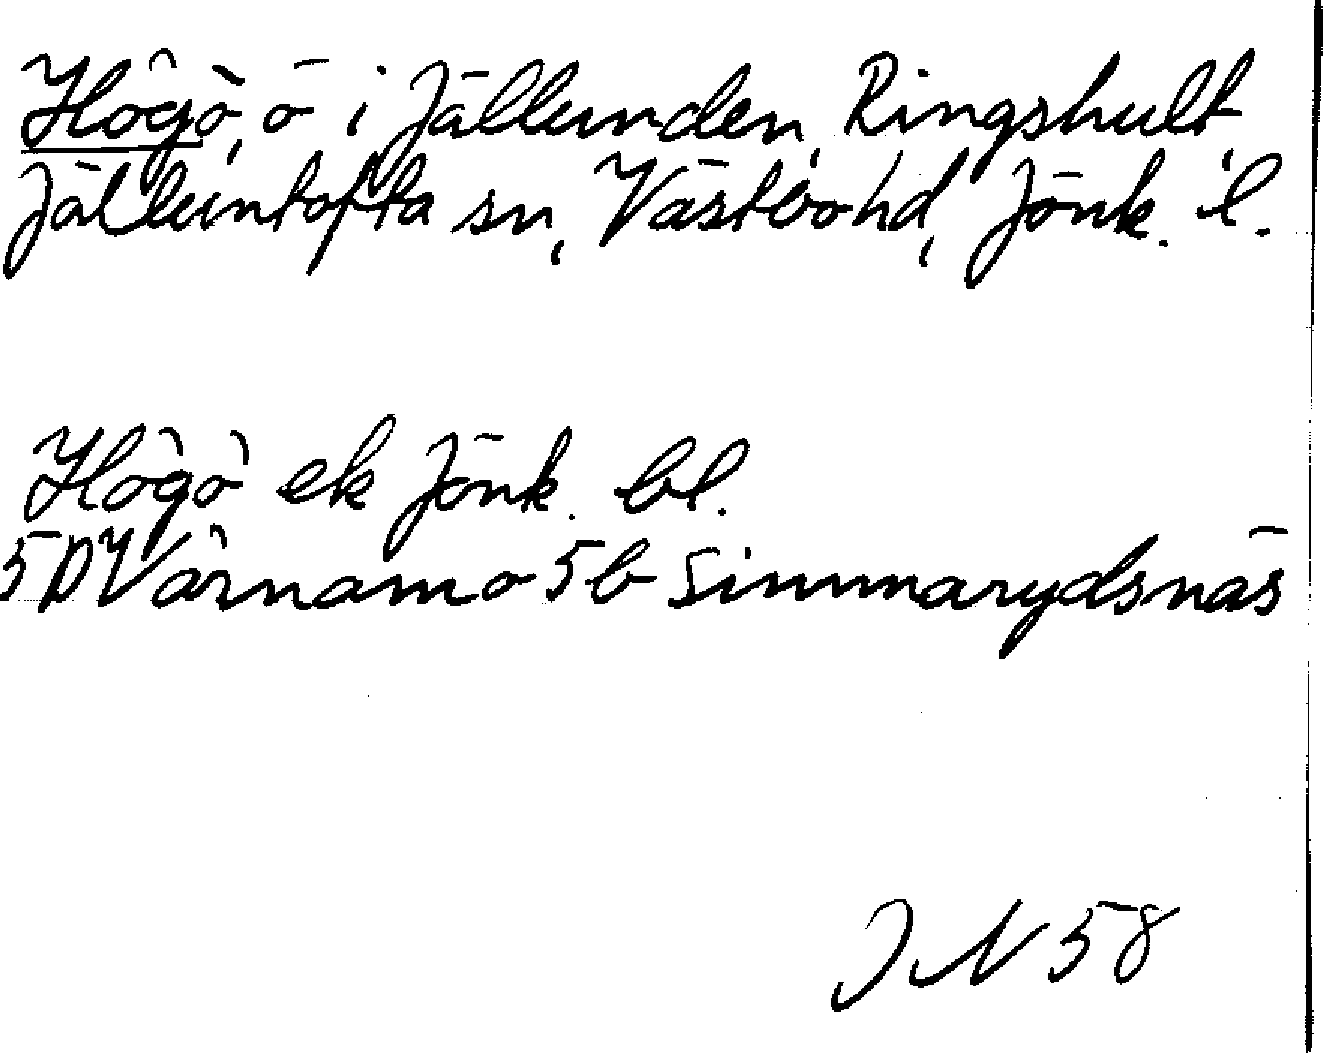 Högö, ö i Jällunden, Ringshult,
Jälluntofta sn, Västbo hd, Jönk. l.
Högö ek Jönk. bl.
5D Värnamo 5b Simmarydsnäs
JN 58